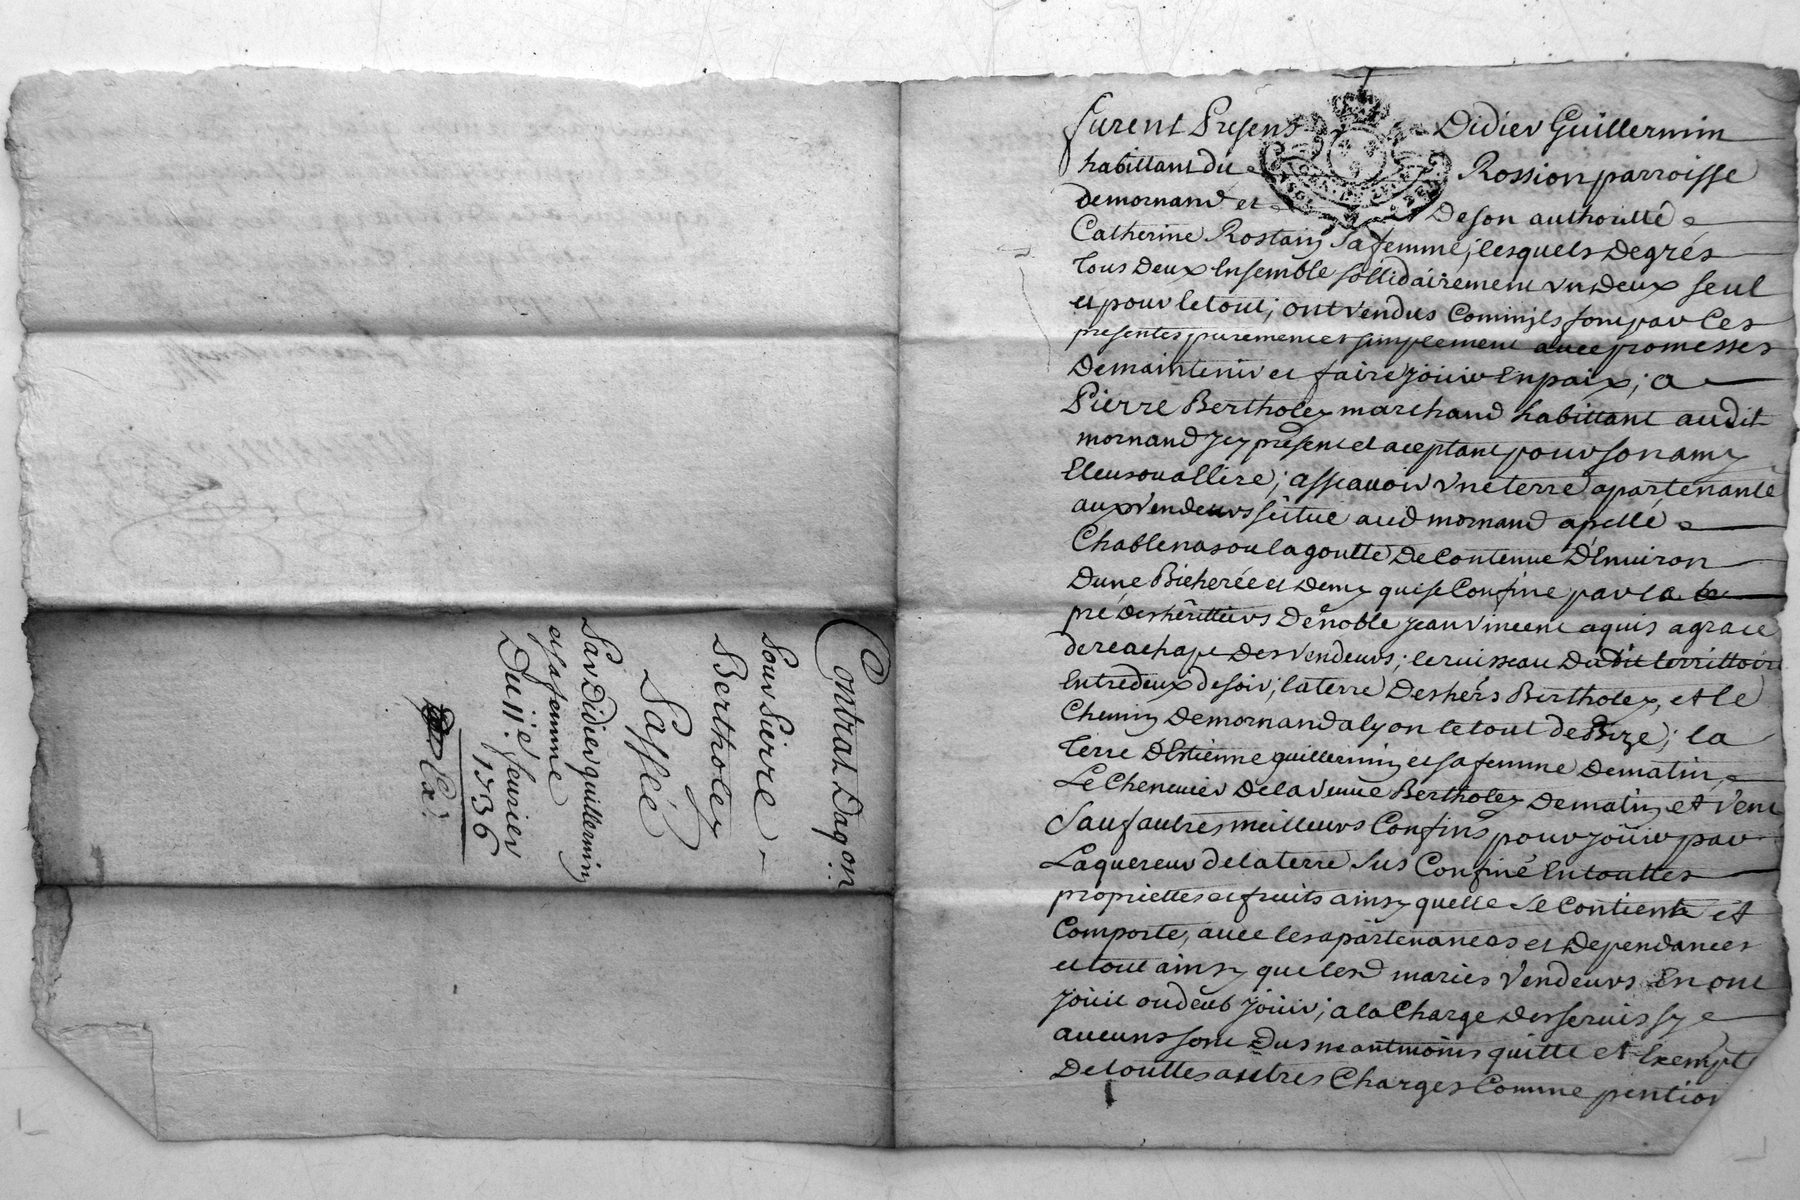 Contrat Daqon:
Pour Pierre
Bertholey
Passée
Par Didier guillermin
et sa femme
Du 11e feurier
1736
Ex:
furent Presens Didier Guillermin
habittant du Rossion parroisse
de mornand et De son authoritté
Catherine Rostain sa femme, lesquels De grés
Tous Deux Ensemble sollidairement vn Deux seul
et pour le tout; ont vendus Comm'jls font par Ces
presentes purement et simplement auec promesses
De maintenir et faire joüir En paix; a
Pierre Bertholey marchand habittant audit
mornand jcy présent et aceptant pour son amy
Eleu ou allire; assauoir vne terre apartenante
aux vendeurs sçitué aud mornand apellé
Chablenas ou la goutte De Contenue D'Enuiron
Dune Bicherée et Demy qui se Confine par la
pré des hérittiers De noble jean vincent aquis a grace
de reachapt Des vendeurs; le ruisseau Dudit territtoire
Entredeux de soir; la terre Des hérs Bertholey, et le
Chemin De mornand a lyon le tout de Bize; la
Terre D'Estienne guillermin et sa femme De matin,
Le Cheneuier De la veuue Bertholey De matin et vent
Sauf autres meilleurs Confins pour joüir par
Laquereur de la terre sus Confiné En touttes
propriettes et fruits ainsy quelle se Contient et
Comporte, auec les apartenances et Dependances
et tout ainsy que lesd mariés vendeurs En ont
joüit ou deub joüir; a la Charge Des seruis sy
aucuns sont Dus neantmoins quitte et Exempte
De touttes autres Charges Comme pention